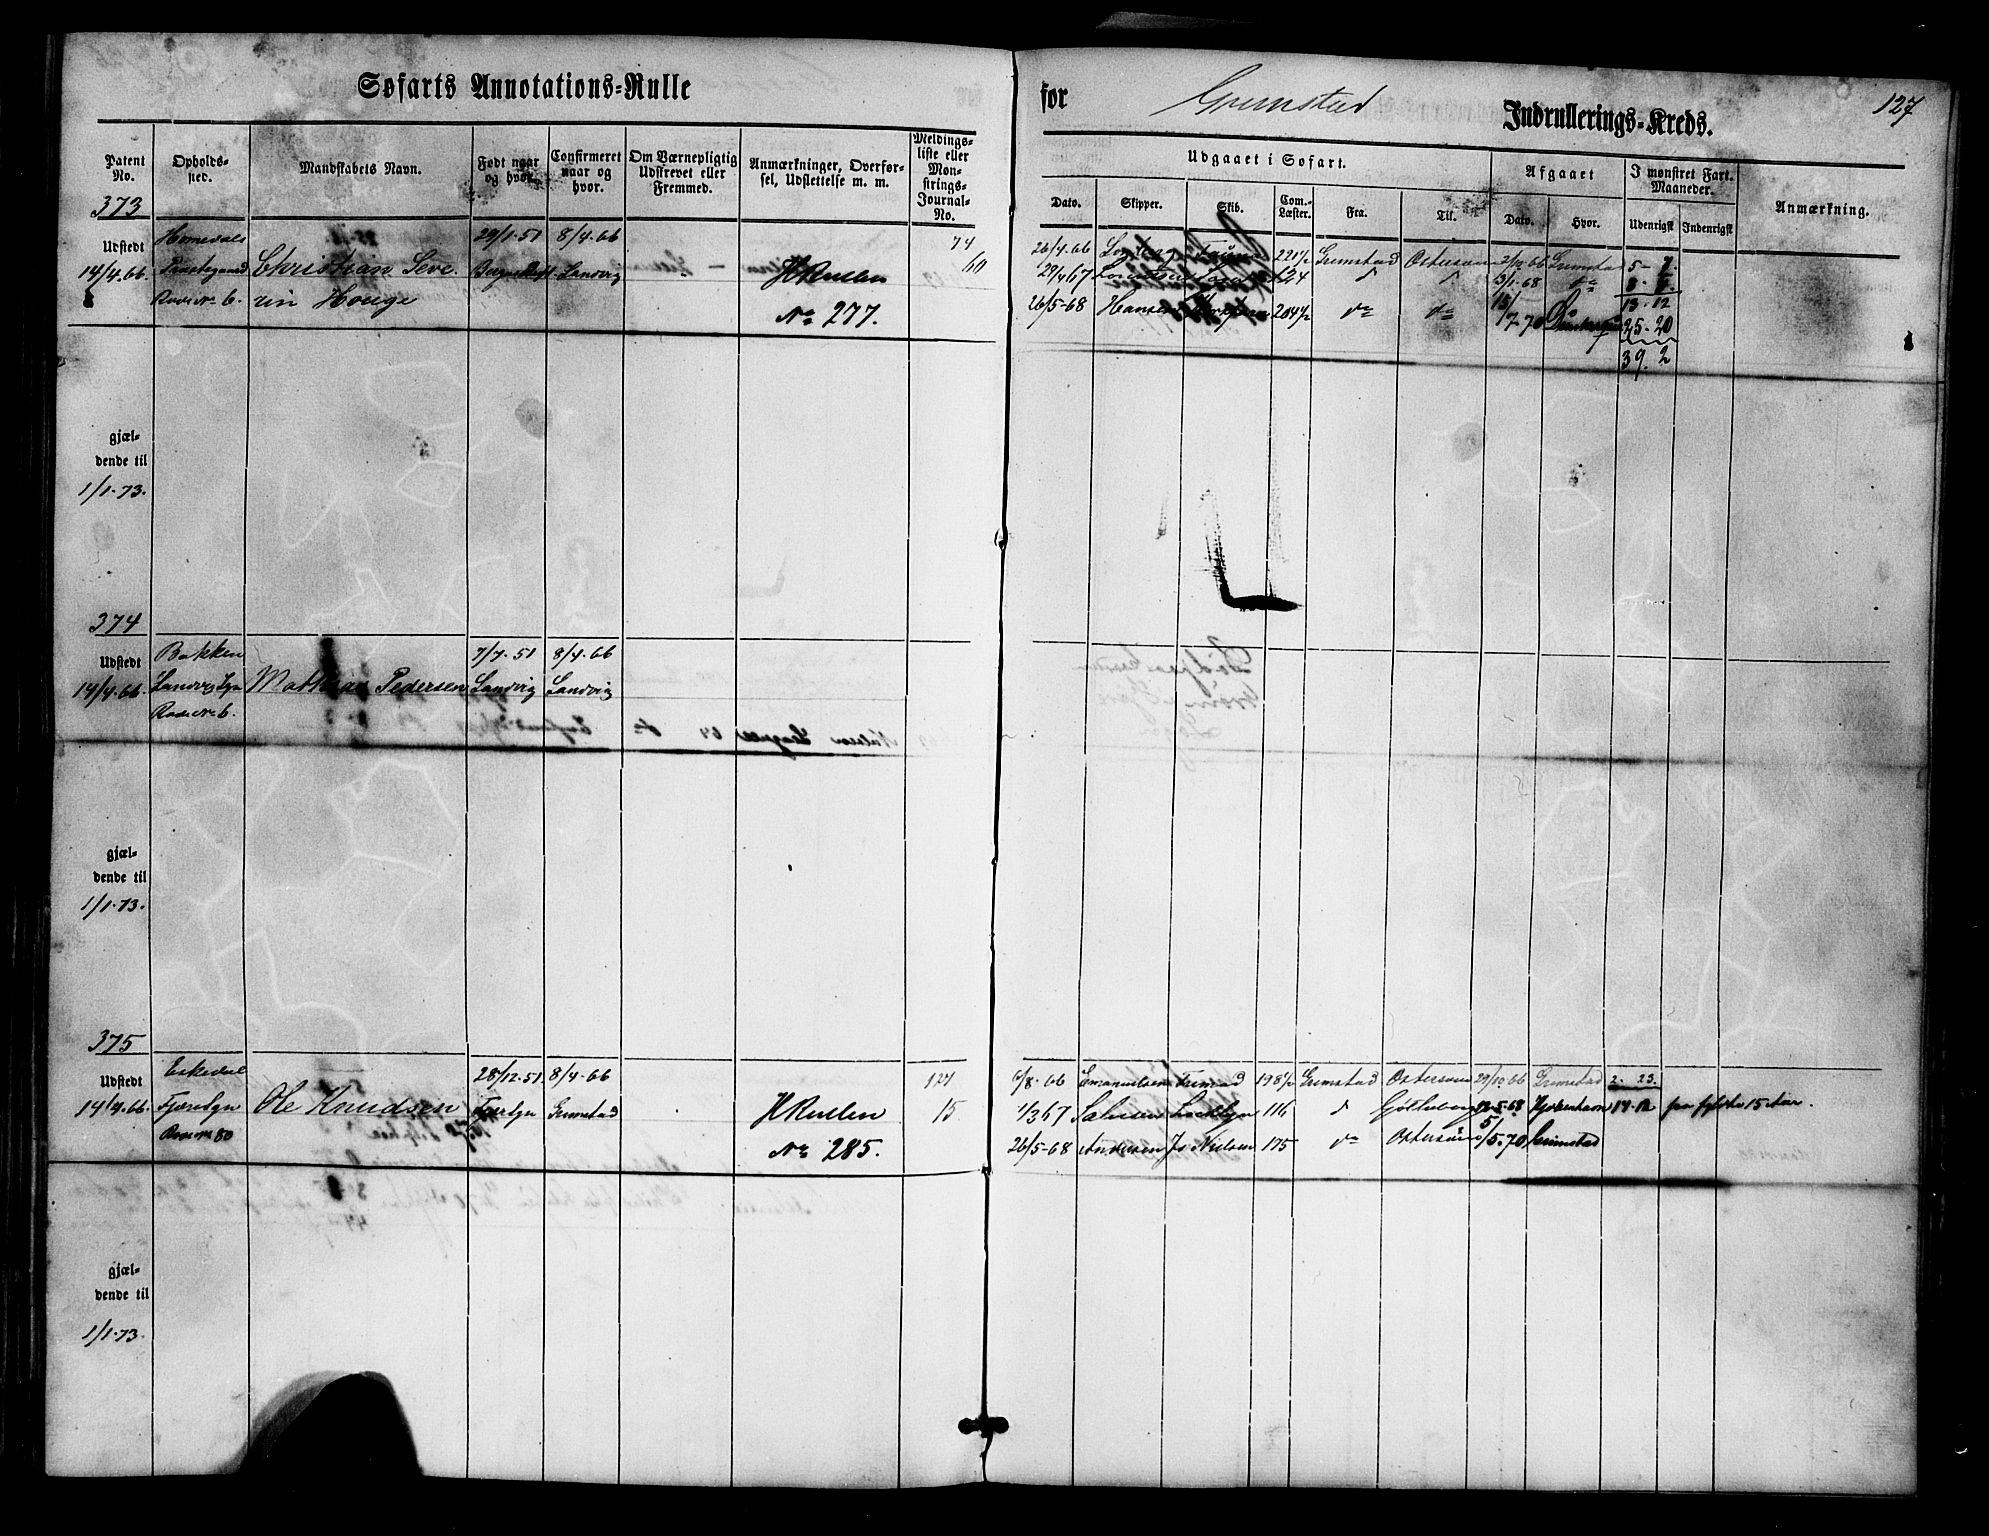 Søfarts Annotations-Rulle
for Grimstad Indrullerings-Kreds.
127
Patent No.
Opholds-sted.
Mandskabets Navn.
Født naar og hvor.
Confirmeret naar og hvor.
Om Værnepligtig Udskrevet eller Fremmed.
Anmærkninger, Overførsel, Udslettelse m. m.
Meldingsliste eller Mønstrings-Journal-No.
Udgaaet i Søfart.
Dato.
Skipper.
Skib.
Com.-Læster.
Fra.
Til.
Afgaaet
Dato.
Hvor.
I mønstret Fart. Maaneder.
Udenrigsk
Indenrigsk
Anmærkning.
373
Homedals 29/1.51 8/4.66 74
Udstedt
14/4.66. Christian Seve Landvig HRullen 60
Rode No 6. rin Houge No 277.
26/4.66 221½ Grimstad Østersøen Grimstad 5-7
29/4 67 Lorentsen 124 3/1.68 do
26/5-68 Hansen 204½ do do 15/7-70 13.12
25-20
39.2
gjæl-
dende til
1/1.73.
374
Bakken 7/7.51 8/4.66
Udstedt
14/4.66. Landvig Sgn Mathias Pedersen Landvig Landvig
Rode No 6.
gjæl-
dende til
1/1.73.
375
Eskedal 28/12.51 8/4.66 121
Udstedt
14/4.66. Fjæresgn Ole Knudsen Fjæresgn Grimstad HRullen 15
Rode No 80 No 285.
/8.66 Emanuelsen Trimiad 198½ Grimstad Østersøen 29/10 66 Grimstad 2. 23.
/3 67 116 Gøtheborg 5.68 Kjøbenhavn 14.12 paa fyldte 15 Aar.
26/5-68 Andersen Js Nielsen 175 do Østersøen 5/5.70 Grimstad
gjæl-
dende til
1/1.73.